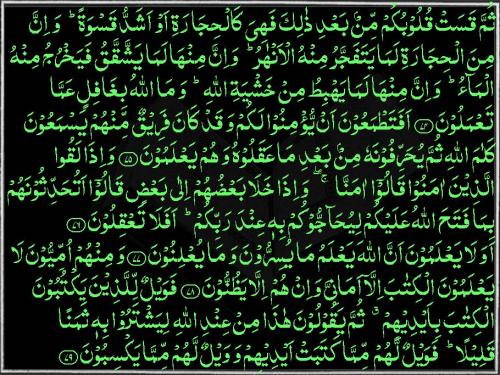 ثُمَّ قَسَتْ قُلُوْبُكُمْ مِّنْۢ بَعْدِ ذٰلِكَ فَهِیَ كَالْحِجَارَةِ اَوْ اَشَدُّ قَسْوَةً ؕ وَ اِنَّ
مِنَ الْحِجَارَةِ لَمَا یَتَفَجَّرُ مِنْهُ الْاَنْهٰرُ ؕ وَ اِنَّ مِنْهَا لَمَا یَشَّقَّقُ فَیَخْرُجُ مِنْهُ
الْمَآءُ ؕ وَ اِنَّ مِنْهَا لَمَا یَهْبِطُ مِنْ خَشْیَةِ اللّٰهِ ؕ وَ مَا اللّٰهُ بِغَافِلٍ عَمَّا
تَعْمَلُوْنَ ﴿۷۴﴾ اَفَتَطْمَعُوْنَ اَنْ یُّؤْمِنُوْا لَكُمْ وَ قَدْ كَانَ فَرِیْقٌ مِّنْهُمْ یَسْمَعُوْنَ
كَلٰمَ اللّٰهِ ثُمَّ یُحَرِّفُوْنَهٗ مِنْۢ بَعْدِ مَا عَقَلُوْهُ وَ هُمْ یَعْلَمُوْنَ ﴿۷۵﴾ وَ اِذَا لَقُوا
الَّذِیْنَ اٰمَنُوْا قَالُوْۤا اٰمَنَّا ۖۚ وَ اِذَا خَلَا بَعْضُهُمْ اِلٰی بَعْضٍ قَالُوْۤا اَتُحَدِّثُوْنَهُمْ
بِمَا فَتَحَ اللّٰهُ عَلَیْكُمْ لِیُحَآجُّوْكُمْ بِهٖ عِنْدَ رَبِّكُمْ ؕ اَفَلَا تَعْقِلُوْنَ ﴿۷۶﴾
اَوَ لَا یَعْلَمُوْنَ اَنَّ اللّٰهَ یَعْلَمُ مَا یُسِرُّوْنَ وَ مَا یُعْلِنُوْنَ ﴿۷۷﴾ وَ مِنْهُمْ اُمِّیُّوْنَ لَا
یَعْلَمُوْنَ الْكِتٰبَ اِلَّاۤ اَمَانِیَّ وَ اِنْ هُمْ اِلَّا یَظُنُّوْنَ ﴿۷۸﴾ فَوَیْلٌ لِّلَّذِیْنَ یَكْتُبُوْنَ
الْكِتٰبَ بِاَیْدِیْهِمْ ۗ ثُمَّ یَقُوْلُوْنَ هٰذَا مِنْ عِنْدِ اللّٰهِ لِیَشْتَرُوْا بِهٖ ثَمَنًا
قَلِیْلًا ؕ فَوَیْلٌ لَّهُمْ مِّمَّا كَتَبَتْ اَیْدِیْهِمْ وَ وَیْلٌ لَّهُمْ مِّمَّا یَكْسِبُوْنَ ﴿۷۹﴾